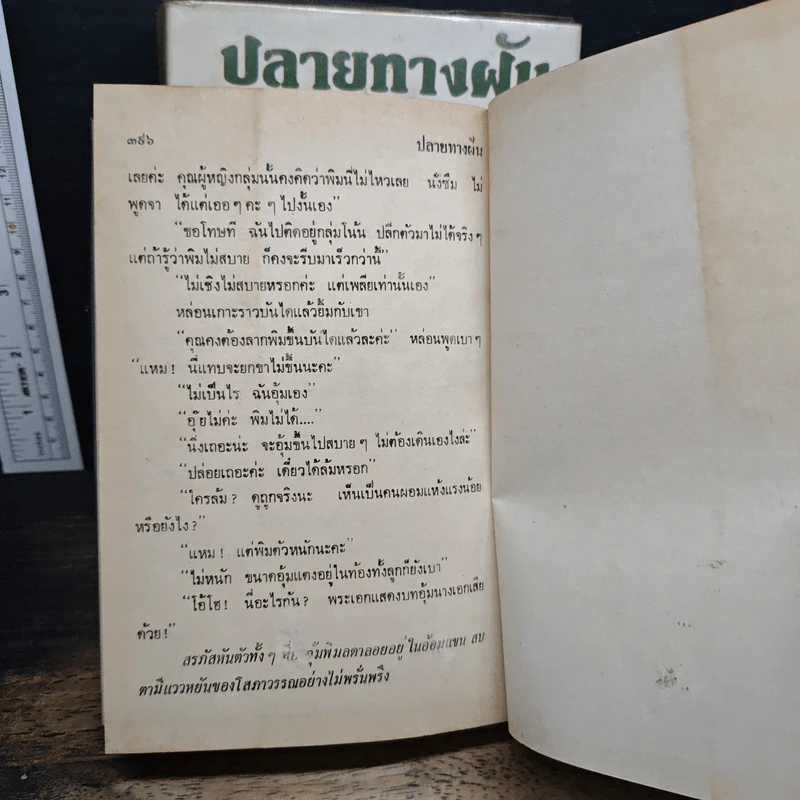 ปลายทางฝัน
๓๙๖
ปลายทางฝัน
เลยค่ะ คุณผู้หญิงกลุ่มนั้นคงคิดว่าพิมนี่ไม่ไหวเลย นั่งซึม ไม่
พูดจา ได้แต่เออ ๆ คะ ๆ ไปงั้นเอง”
“ขอโทษที ฉันไปติดอยู่กลุ่มโน้น ปลีกตัวมาไม่ได้จริง ๆ
แต่ถ้ารู้ว่าพิมไม่สบาย ก็คงจะรีบมาเร็วกว่านี้”
“ไม่เชิงไม่สบายหรอกค่ะ แต่เพลียเท่านั้นเอง”
หล่อนเกาะราวบันไดแล้วยิ้มกับเขา
“คุณคงต้องลากพิมขึ้นบันไดแล้วละค่ะ” หล่อนพูดเบา ๆ
“แหม ! นี่แทบจะยกขาไม่ขึ้นนะคะ”
“ไม่เป็นไร ฉันอุ้มเอง”
“อุ๊ยไม่ค่ะ พิมไม่ได้....”
“นิ่งเถอะน่ะ จะอุ้มขึ้นไปสบาย ๆ ไม่ต้องเดินเองไงล่ะ”
“ปล่อยเถอะค่ะ เดี๋ยวได้ล้มหรอก”
“ใครล้ม ? ดูถูกจริงนะ เห็นเป็นคนผอมแห้งแรงน้อย
หรือยังไง ?”
“แหม ! แต่พิมตัวหนักนะคะ”
“ไม่หนัก ขนาดอุ้มแตงอยู่ในท้องทั้งลูกก็ยังเบา”
“โอ้โฮ ! นี่อะไรกัน ? พระเอกแสดงบทอุ้มนางเอกเสีย
ด้วย !”
สรภัสหันตัวทั้ง ๆ ที่ อุ้มพิมลตาลอยอยู่ในอ้อมแขน สบ
ตามีแววหยันของโสภาวรรณอย่างไม่พรั่นพรึง